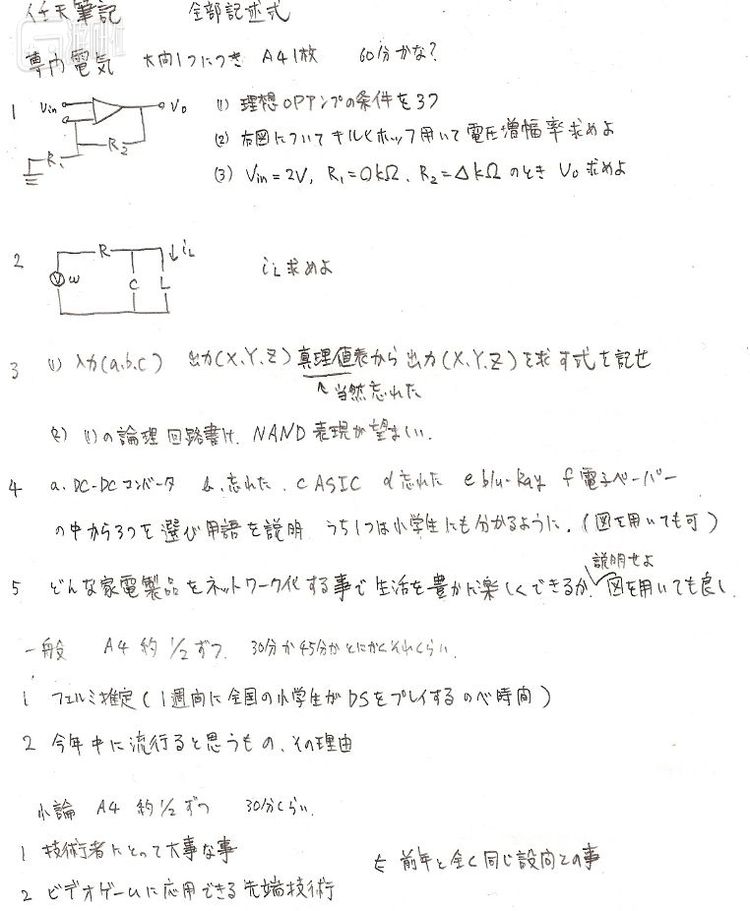 任天筆記 全部記述式
専門電気 大問1つにつき A4 1枚 60分かな?
1 Vin Vo R1 R2
(1) 理想OPアンプの条件を3つ
(2) 右図についてキルヒホッフ用いて電圧増幅率求めよ
(3) Vin=2V, R1=○kΩ, R2=△kΩ のとき Vo 求めよ
2 V ω R C L iL
iL求めよ
3 (1) 入力(a,b,c) 出力(X,Y,Z) 真理値表から出力(X,Y,Z)を求す式を記せ
↖当然忘れた
(2) (1)の論理回路書け、NAND表現が望ましい.
4 a. DC-DCコンバータ b.忘れた c ASIC d忘れた e blu-Ray f 電子ペーパー
の中から3つを選び用語を説明 うち1つは小学生にも分かるように.(図を用いても可)
5 どんな家電製品をネットワーク化する事で生活を豊かに楽しくできるか、説明せよ 図を用いても良し
一般 A4 約1/2ずつ 30分か45分かとにかくそれくらい.
1 フェルミ推定(1週間に全国の小学生がDSをプレイするのべ時間)
2 今年中に流行ると思うもの、その理由
小論 A4 約1/2ずつ 30分くらい.
1 技術者にとって大事な事
2 ビデオゲームに応用できる先端技術
前年と全く同じ設問との事